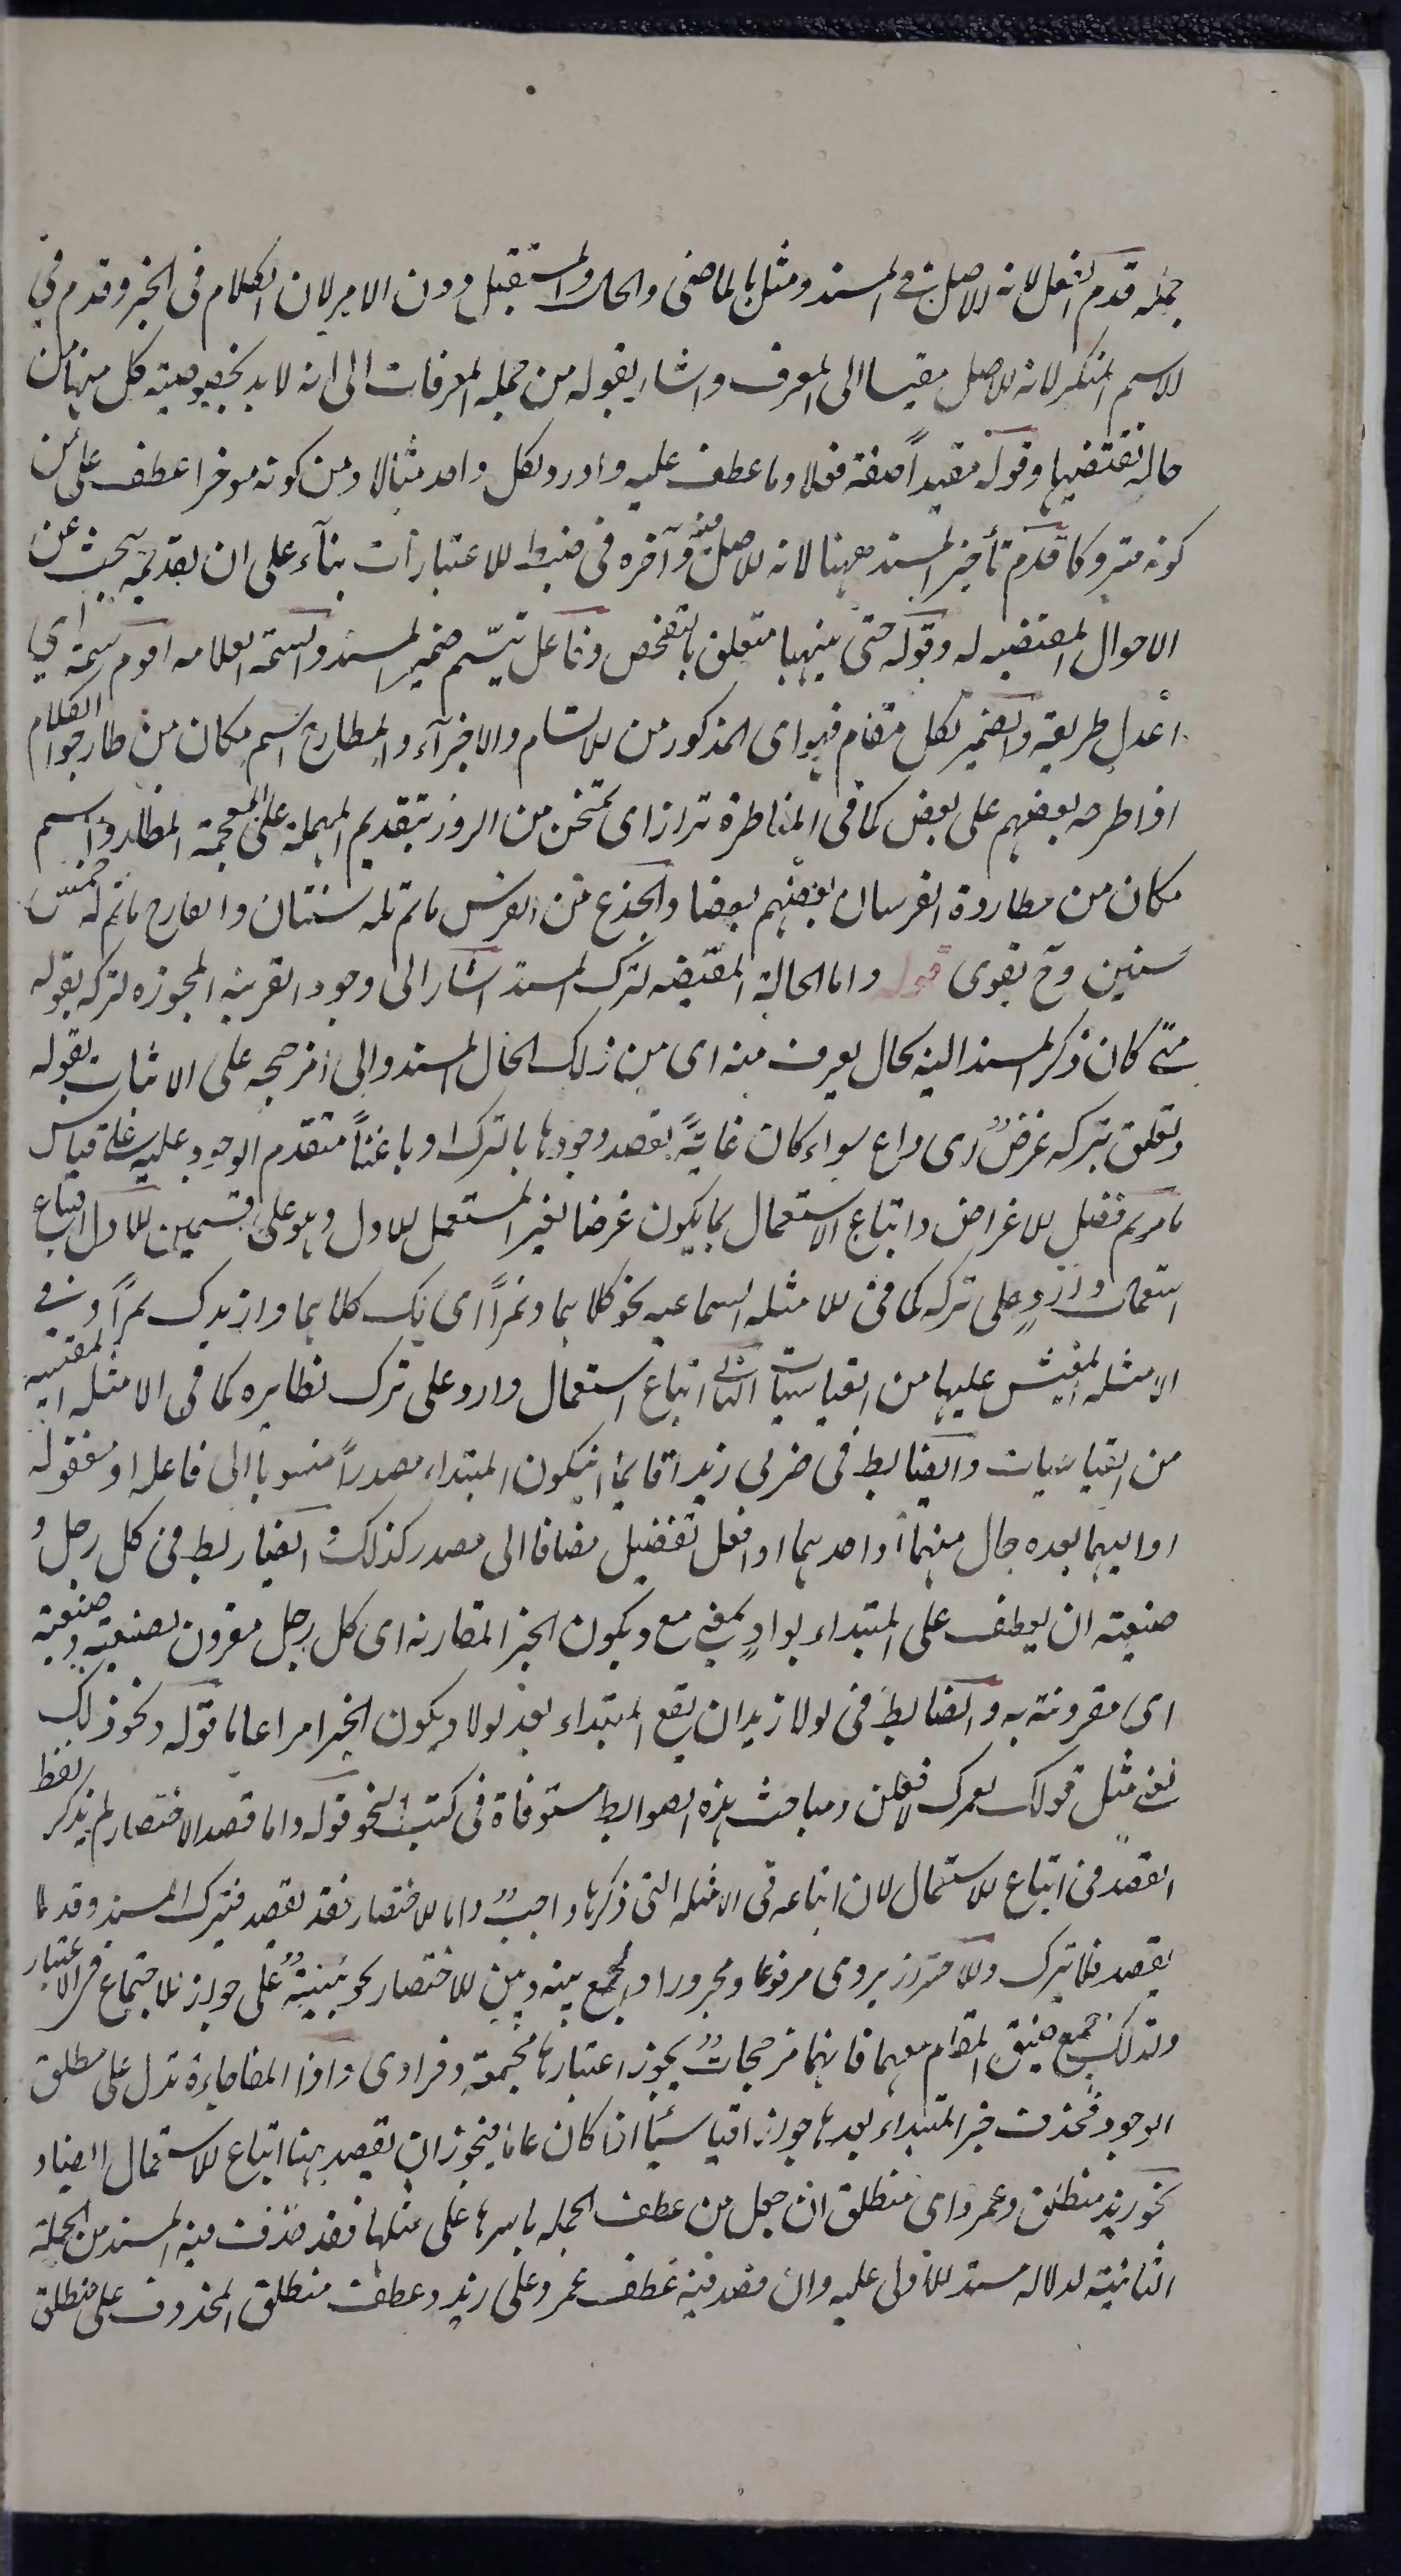 جملة قدم الفعل لانه الاصل في المسند ومثل بالماضي والحال والمستقبل دون الامر لان الكلام في الخبر وقدم في
الاسم المنكر لانه الاصل مقيسا الى المعرف واشار بقوله من جملة المعرفات الى انه لا بد لخصوصية كل منها من
حالة تقتضيها وقوله مقيدا صفة فعلا وما عطف عليه واورد لكل واحد مثالا ومن كونه موخرا عطف على من
كونه متروكا قدم تأخير المسند ههنا لانه الاصل فيه وآخره في ضبط الاعتبارات بناء على ان بتقديمه يبحث عن
الاحوال المقتضيه له وقوله حتى يتهيا متعلق بالتفحص وفاعل يتسم ضمير المسند والسمة العلامه اقوم سمة اي
اعدل طريقة والضمير لكل مقام فهو اى المذكور من الاتسام والاجراء والمطارح اسم مكان من طارحوا الكلام
اذا طرحه بعضهم على بعض كما في المناظرة تراز اى تمتحن من الروز بتقديم المهملة على المعجمة المطارد اسم
مكان من مطاردة الفرسان بعضهم بعضا والجذع من الفرس ما تم له سنتان والقارح ما تم له خمس
سنين وح يقوى قوله واما الحالة المقتضيه لترك المسند اشار الى وجود القرينه المجوزه لتركه بقوله
متى كان ذكر المسند اليه بحال يعرف منه اى من ذلك الحال المسند والى المرجحه على الاثبات بقوله
وتعلق بتركه غرض اى داع سواء كان غاية يقصد وجودها بالترك او باعثا متقدم الوجود عليه على قياس
ما مر في فصل الاغراض واتباع الاستعمال بما يكون غرضا لغير المستعمل الاول وهو على قسمين الاول اتباع
استعمال وارد على تركه كما في الامثله السماعيه نحو كلاهما وتمرا اى لك كلاهما وازيدك تمرا وفي
الامثله المقيس عليها من القياسيات الثاني اتباع استعمال وارد على ترك نظايره كما في الامثله المقتبسه
من القياسيات والضابط في ضربي زيدا قايما ان يكون المبتداء مصدرا منسوبا الى فاعله او مفعوله
او اليهما بعده حال منهما او احدهما او افعل تفضيل مضافا الى مصدر كذلك والضابط في كل رجل و
ضيعته ان يعطف على المبتداء بواو بمعنى مع ويكون الخبر المقارنه اى كل رجل مقرون بضيعته وضيعته
اى مقرونة به والضابط في لولا زيد ان يقع المبتداء بعد لولا ويكون الخبر امرا عاما قوله ونحو ذلك
يعني مثل قولك لعمرك لافعلن ومباحث هذه الضوابط مستوفاة في كتب النحو قوله واما قصد الاختصار لم يذكر لفظ
القصد في اتباع الاستعمال لان اتباعه في الامثله التي ذكرها واجب واما الاختصار فقد يقصد فيترك المسند وقد لا
يقصد فلا يترك والاحتراز يروى مرفوعا ومجرورا والجمع بينه وبين الاختصار تنبيه على جواز الاجتماع في الاعتبار
ولذلك جمع ضيق المقام معهما فانهما مرجحات يجوز اعتبارها مجتمعة وفرادى واذا المفاجاءة تدل على مطلق
الوجود فحذف خبر المبتداء بعدها جوازا قياسيا اذا كان عاما فيجوز ان يقصد ههنا اتباع الاستعمال ايضا و
نحو زيد منطلق وعمرو اى منطلق ان جعل من عطف الجمله باسرها على مثلها فقد حذف فيه المسند من الجملة
الثانية لدلالة مسند الاولى عليه وان قصد فيه عطف عمرو على زيد وعطف منطلق المحذوف على منطلق